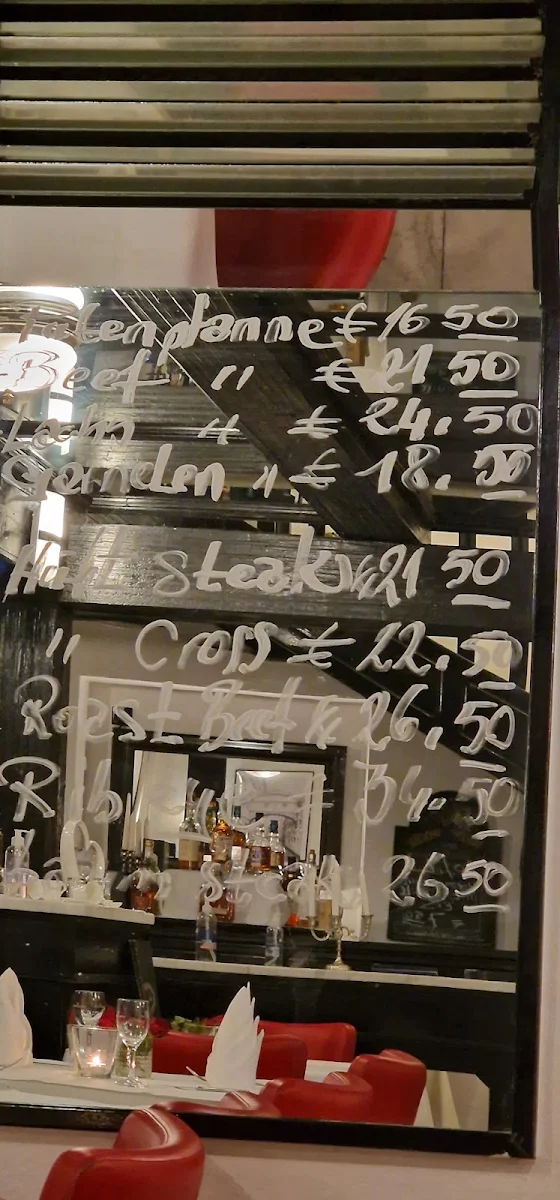 tatenpfanne € 16 50
Beef " € 21 50
Lachs " € 24. 50
Garnelen " € 18. 50
Hüft Steak € 21 50
" Cross € 22. 50
Roast Beef € 26, 50
Ribeye € 34. 50
steak 26 50